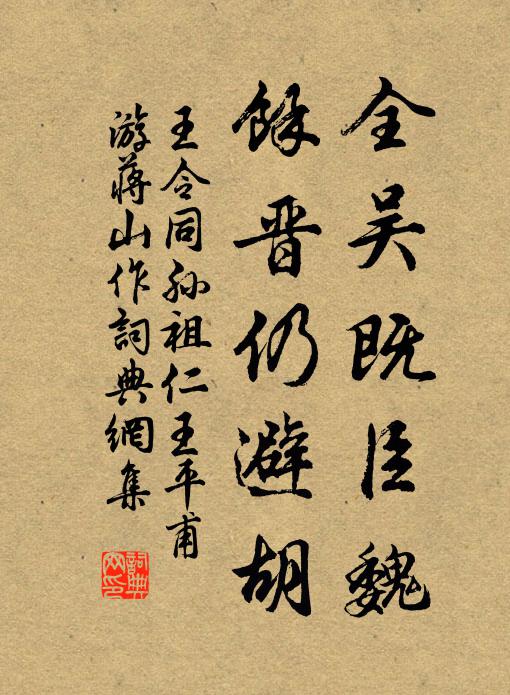 全吴既臣魏
餘晋仍避胡
王令同孙祖仁王平甫
游蒋山作詞典網集
詞典網印